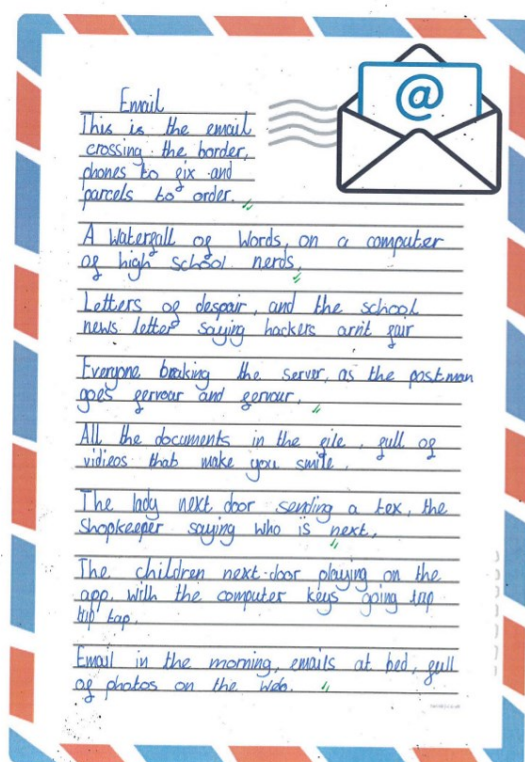 @
Email
This is the email
crossing the border,
phones to fix and
parcels to order.
A Waterfall of Words, on a computer
of high school nerds,
Letters of despair, and the school
news letter saying hackers arnit fair
Everyone braking the server, as the postman
goes fervour and fervour,
All the documents in the file, full of
vidieos that make you smile.
The lady next door sending a tex, the
Shopkeeper saying who is next,
The children next-door playing on the
app. with the computer keys going tap
tip tap.
Email in the morning, emails at bed, full
of photos on the Web.